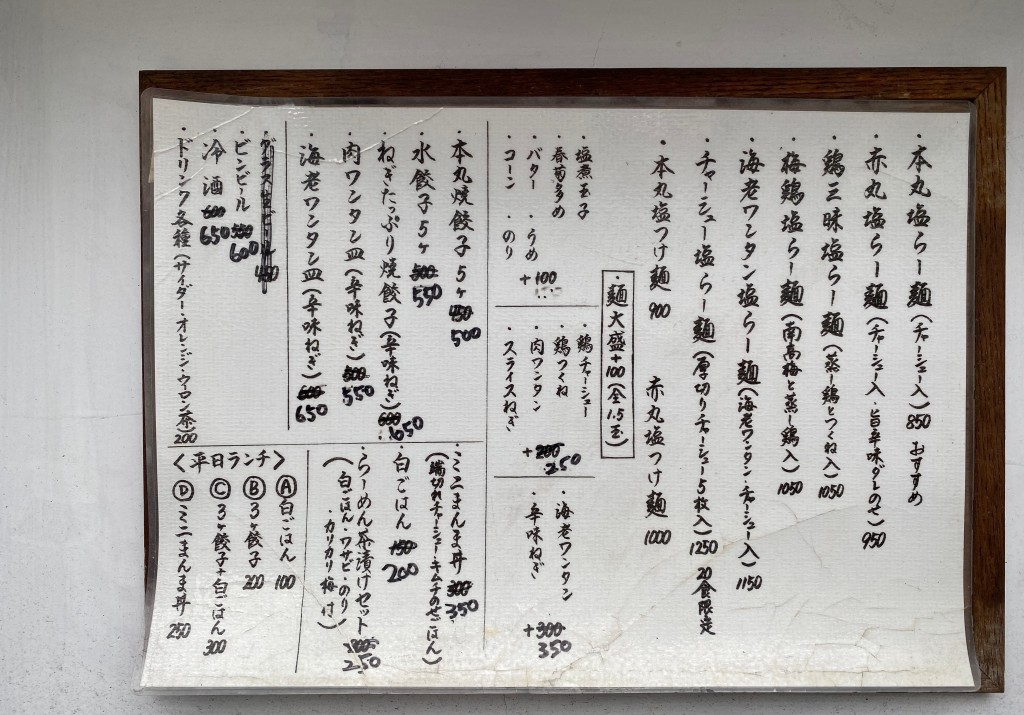 ・本丸塩らー麺(チャーシュー入)850 おすすめ
・赤丸塩らー麺(チャーシュー入・旨辛味ダレのせ)950
・鶏三昧塩らー麺(蒸し鶏とつくね入)1050
・梅鶏塩らー麺(南高梅と蒸し鶏入)1050
・海老ワンタン塩らー麺(海老ワンタン・チャーシュー入)1150
・チャーシュー塩らー麺(厚切りチャーシュー5枚入)1250 20食限定
・本丸塩つけ麺 900 赤丸塩つけ麺 1000
・麺大盛+100(全1.5玉)
・塩煮玉子
・春菊多め
・バター ・うめ
・コーン ・のり
+100
・鶏チャーシュー
・鶏つくね
・肉ワンタン
・スライスねぎ
+200 250
・海老ワンタン
・辛味ねぎ
+300 350
・本丸焼餃子5ヶ 450 500
・水餃子5ヶ 500 550
・ねぎたっぷり焼餃子(辛味ねぎ)600 650
・肉ワンタン皿(辛味ねぎ)500 550
・海老ワンタン皿(辛味ねぎ)600 650
・ミニまんま丼 300 350
(端切れチャーシュー・キムチのせごはん)
・白ごはん 150 200
・らーめん茶漬けセット 200 250
(白ごはん・ワサビ・のり
・カリカリ梅付)
・グラス生ビール 450
・ビンビール 550 600
・冷酒 600 650
・ドリンク各種(サイダー・オレンジ・ウーロン茶)200
<平日ランチ>
Ⓐ白ごはん 100
Ⓑ3ヶ餃子 200
Ⓒ3ヶ餃子+白ごはん 300
Ⓓミニまんま丼 250